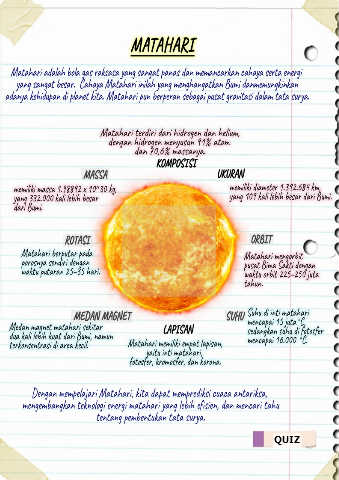 MATAHARI
Matahari adalah bola gas raksasa yang sangat panas dan memancarkan cahaya serta energi
yang sangat besar. Cahaya Matahari inilah yang menghangatkan Bumi danmemungkinkan
adanya kehidupan di planet kita. Matahari pun berperan sebagai pusat gravitasi dalam tata surya.
Matahari terdiri dari hidrogen dan helium,
dengan hidrogen menyusun 91% atom
dan 70,6% massanya.
KOMPOSISI
MASSA
memiliki massa 1.98892 x 10^30 kg,
yang 332.000 kali lebih besar
dari Bumi.
UKURAN
memiliki diameter 1.392.684 km,
yang 109 kali lebih besar dari Bumi.
ROTASI
Matahari berputar pada
porosnya sendiri dengan
waktu putaran 25-35 hari.
ORBIT
Matahari mengorbit
pusat Bima Sakti dengan
waktu orbit 225-250 juta
tahun.
MEDAN MAGNET
Medan magnet matahari sekitar
dua kali lebih kuat dari Bumi, namun
terkonsentrasi di area kecil.
LAPISAN
Matahari memiliki empat lapisan,
yaitu inti matahari,
fotosfer, kromosfer, dan korona.
SUHU
Suhu di inti matahari
mencapai 15 juta °C,
sedangkan suhu di fotosfer
mencapai 16.000 °C.
Dengan mempelajari Matahari, kita dapat memprediksi cuaca antariksa,
mengembangkan teknologi energi matahari yang lebih efisien, dan mencari tahu
tentang pembentukan tata surya.
QUIZ